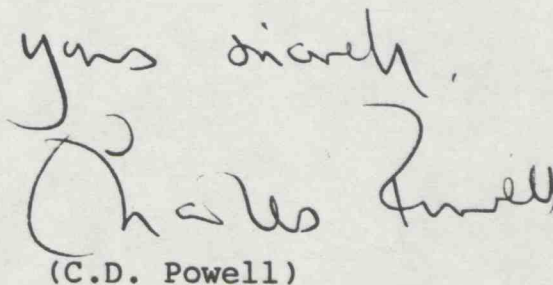 Yours sincerely,
Charles Powell
(C.D. Powell)